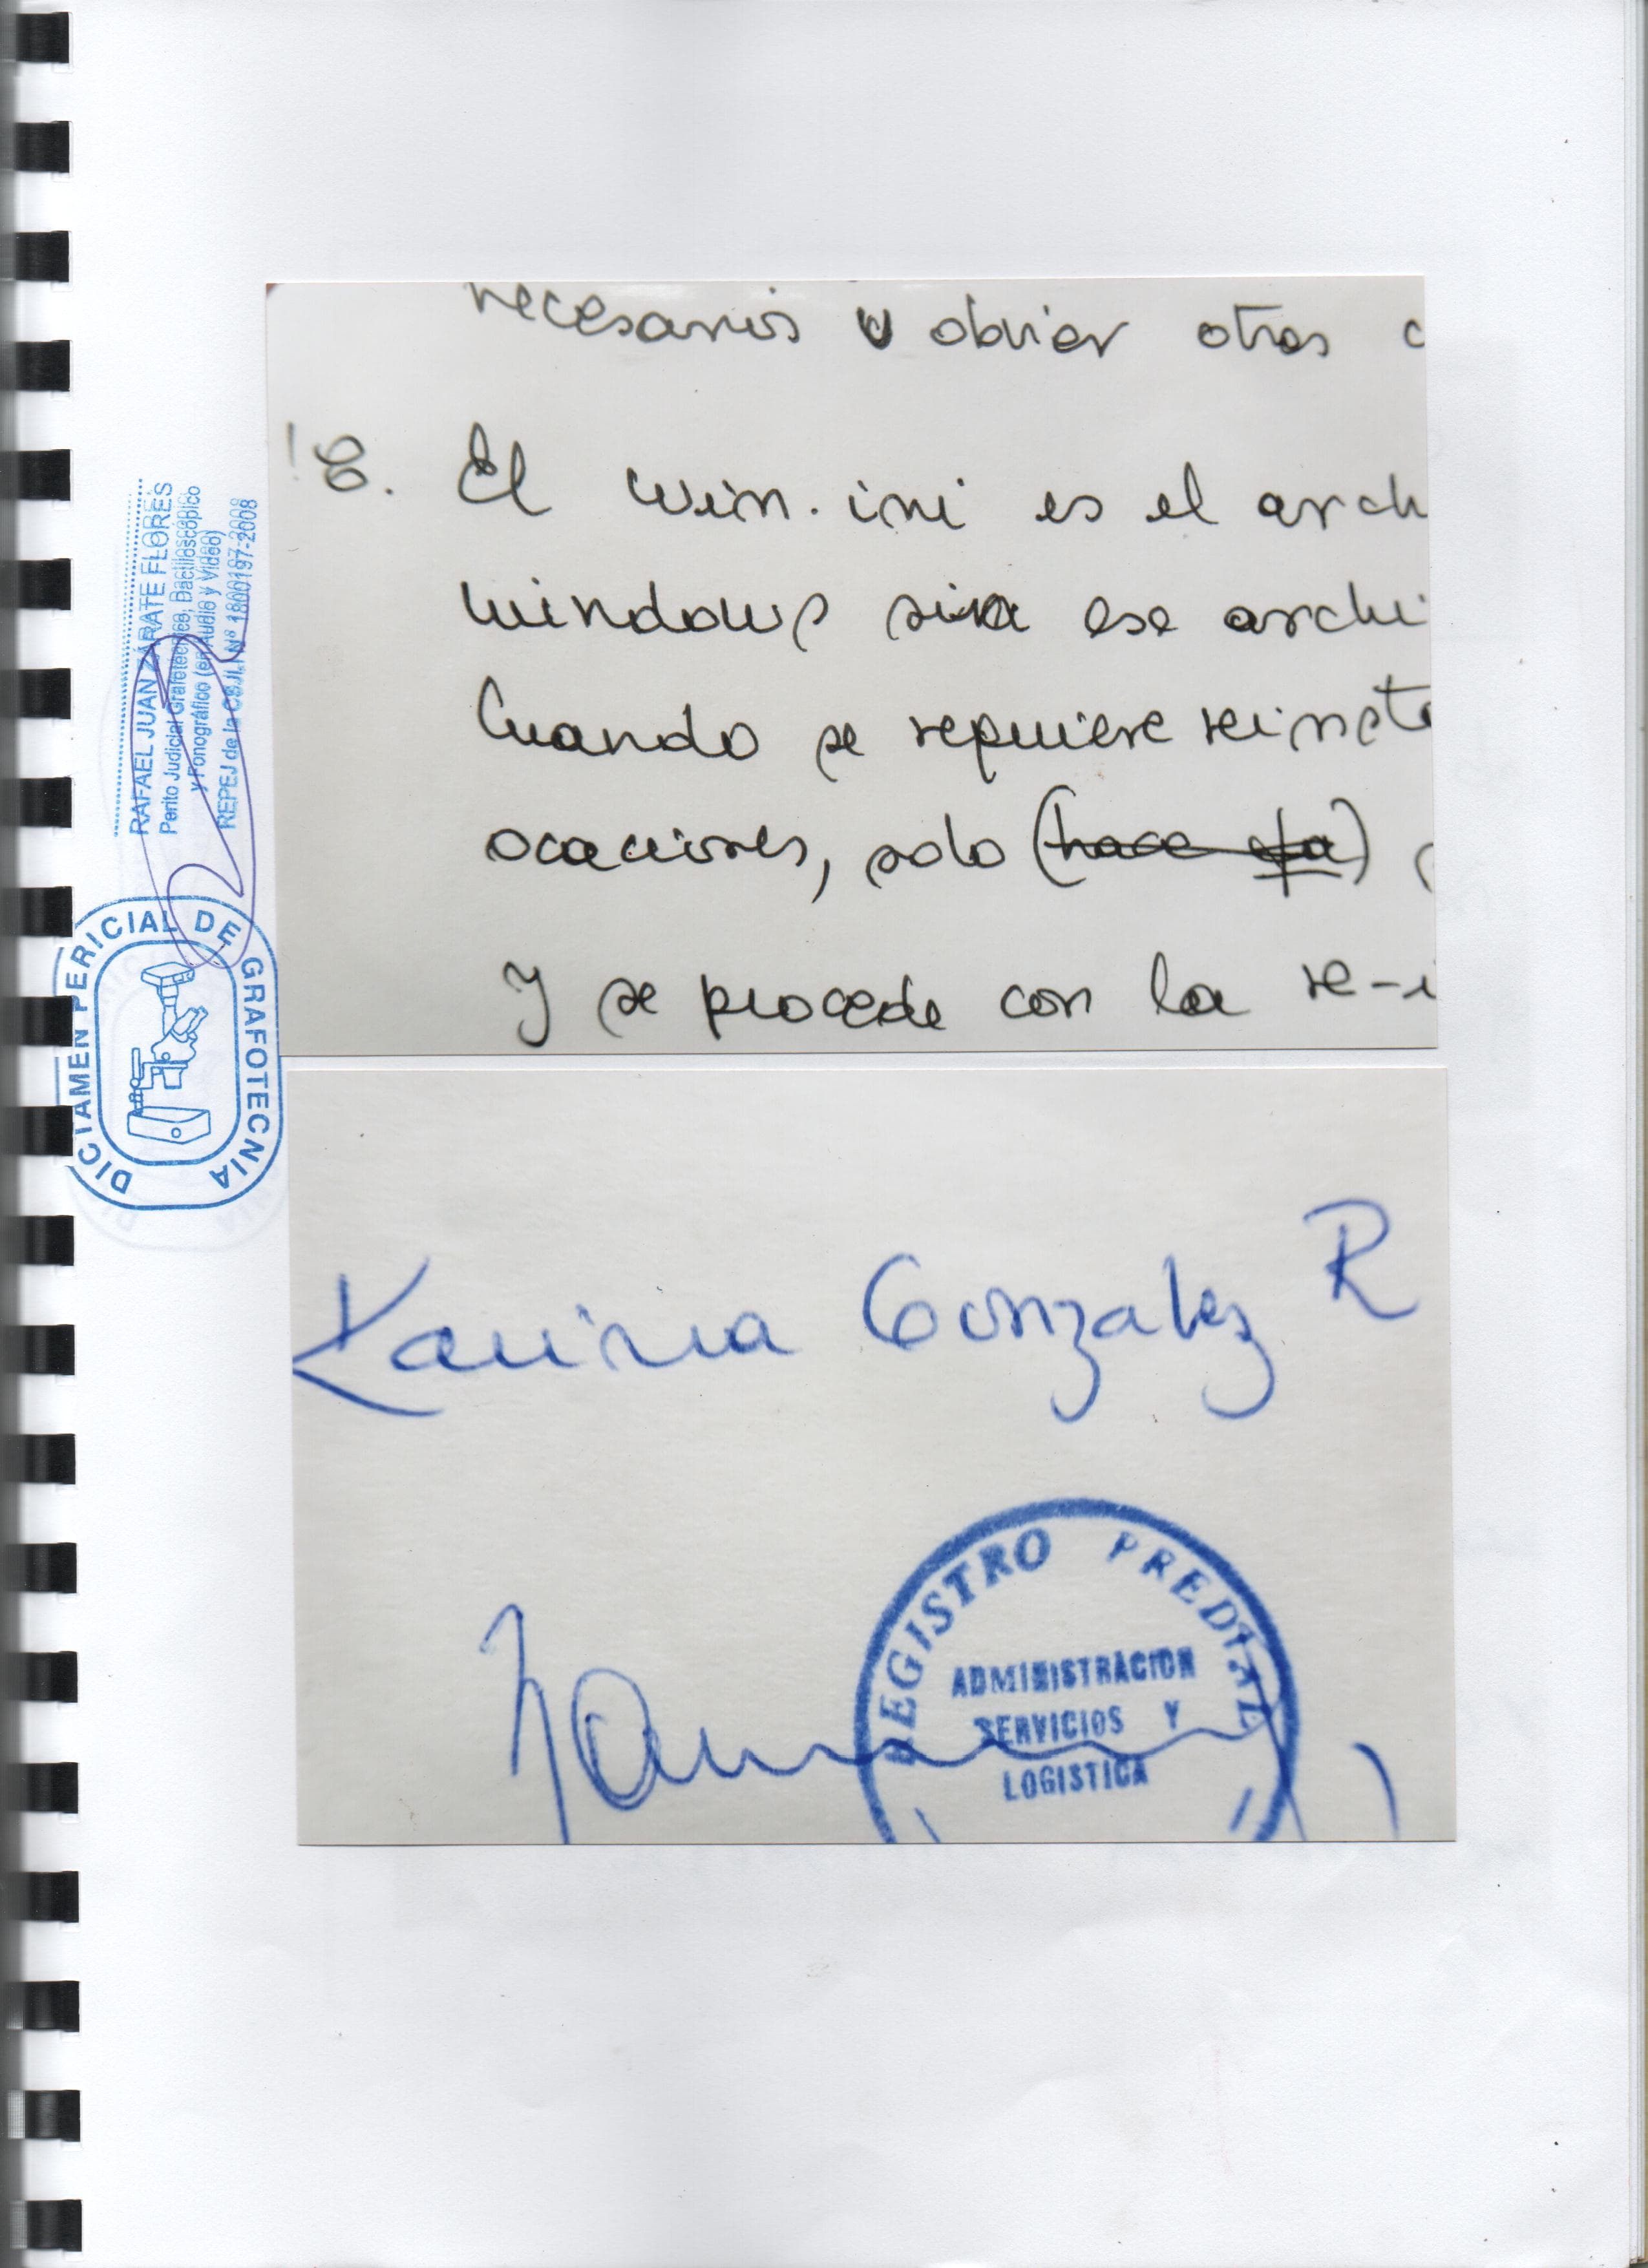 necesarios y obviar otros
18. El win.ini es el arch
windows sin ese archi
Cuando se requiere reinsta
ocaciones, solo (hace )
y se procede con la re-i
Karina Gonzalez R
REGISTRO PREDIAL
ADMINISTRACION
SERVICIOS Y
LOGISTICA
RAFAEL JUAN ZÁRATE FLORES
Perito Judicial Grafotécnico, Dactiloscópico
y Fonográfico (en Audio y Video)
REPEJ de la CSJLI Nº 1800197-2008
DICTAMEN PERICIAL DE GRAFOTECNIA